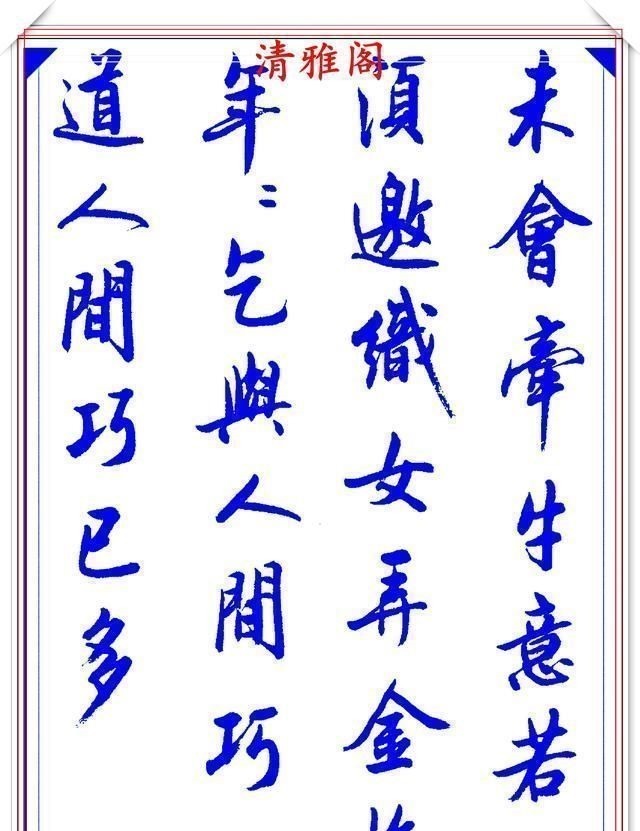 清雅阁
未會牽牛意若
湏邀織女弄金
年〻乞與人間巧
道人間巧已多